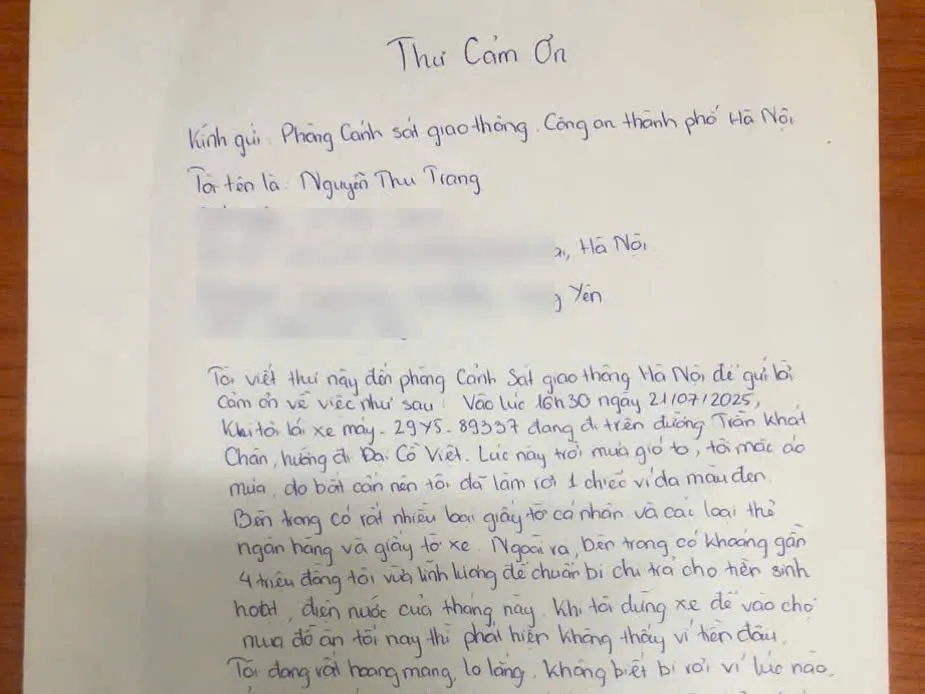 Thư Cảm Ơn
Kính gửi: Phòng Cảnh sát giao thông. Công an thành phố Hà Nội
Tôi tên là: Nguyễn Thu Trang
, Hà Nội
Yên
Tôi viết thư này đến phòng Cảnh Sát giao thông Hà Nội để gửi lời
cảm ơn về việc như sau: Vào lúc 16h30 ngày 21/07/2025,
Khi tôi lái xe máy - 29Y5 - 89337 đang đi trên đường Trần Khát
Chân, hướng đi Đại Cồ Việt. Lúc này trời mưa gió to, tôi mặc áo
mưa, do bất cẩn nên tôi đã làm rơi 1 chiếc ví da màu đen.
Bên trong có rất nhiều loại giấy tờ cá nhân và các loại thẻ
ngân hàng và giấy tờ xe. Ngoài ra, bên trong có khoảng gần
4 triệu đồng tôi vừa lĩnh lương để chuẩn bị chi trả cho tiền sinh
hoạt, điện nước của tháng này. Khi tôi dừng xe để vào chợ
mua đồ ăn tối nay thì phát hiện không thấy ví tiền đâu.
Tôi đang rất hoang mang, lo lắng, không biết bị rơi ví lúc nào,